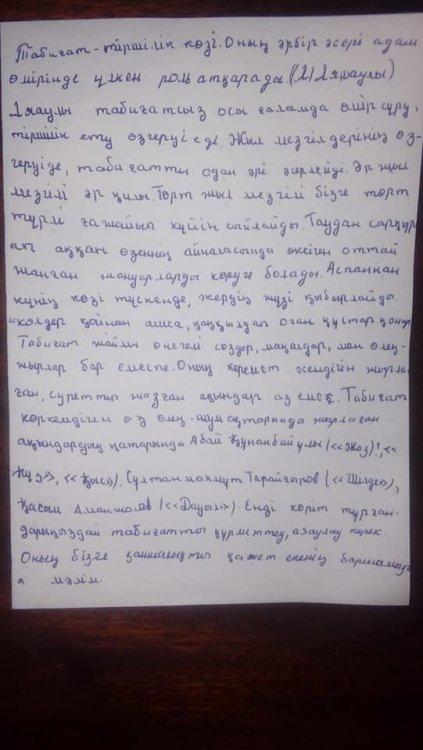 Табиғат - тіршілік көзі. Оның әрбір әсері адам
өмірінде үлкен роль атқарады. (М) Ляяаулы)
Ляаулы табиғатсыз осы ғаламда өмір сүру,
тіршілік ету өзгеруі еді. Жыл мезгілдерінің өз-
геруіде, табиғатты одан әрі әрлейді. Әр жыл
мезгілі әр қилы. Төрт жыл мезгілі бізге төрт
түрлі ғажайып күйін сыйлайды. Таудан сарқыр
ап аққан өзеннің айналасында өксіген оттай
жанған жануарларды көруге болады. Аспаннан
күнің көзі түскенде, жердің жүзі қыбырлайды.
көлдер қайнап жатса, қаңқылдап оған құстар қонар
Табиғат жайлы өнегелі сөздер, мақалдар, мен өлең-
жырлар бар емеспе. Оның керемет әсемдігін жырла-
ған, суретті жазған ақындар аз емес. Табиғат
көркемдігін өз өлең - шумақтарында жырлаған
ақындардың қатарында Абай Құнанбайұлы (<<Жаз>>, <<
Күз>>, <<Қыс>>), Сұлтанмахмұт Торайғыров (<<Шілде>>),
Қасым Аманжолов (<<Дауыл>>). Енді көріп тұрған-
дарыңыздай табиғатты құрметтеу, аялау керек.
Оның бізге қаншалықты қажет екенің баршамызғ
а мәлім.